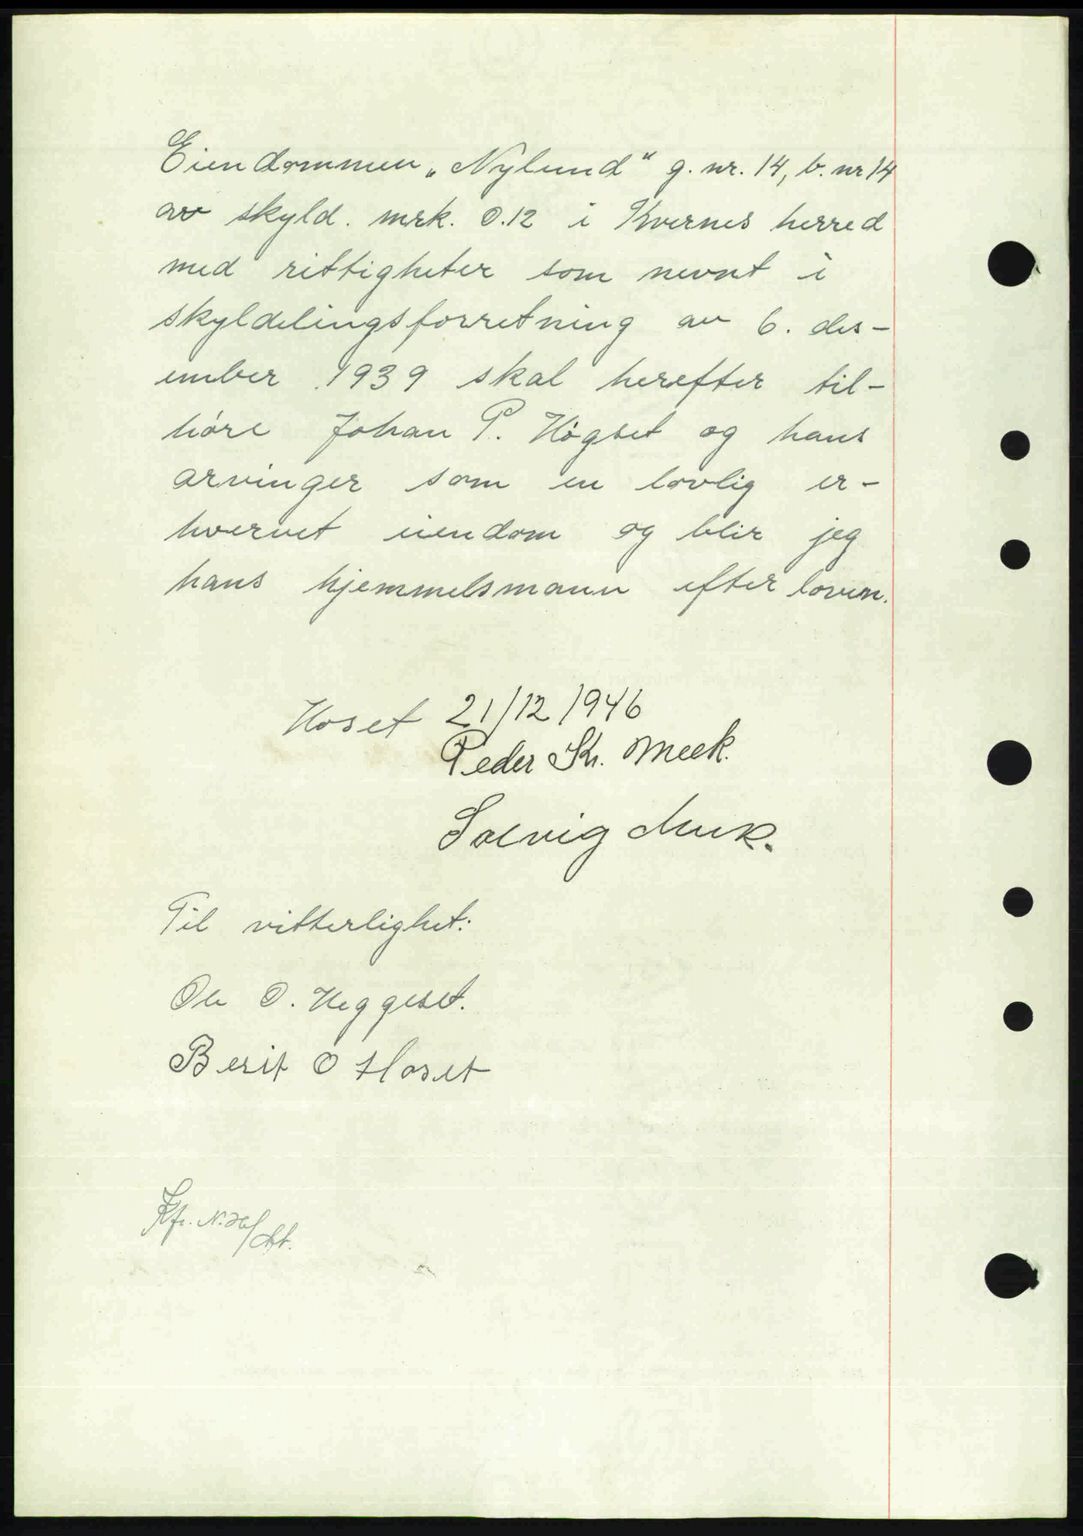 Eiendommen „Nylund“ g. nr. 14, b. nr 14
av skyld. mrk. 0.12 i Kvernes herred
med rettigheter som nevnt i
skyldelingsforretning av 6. des-
ember 1939 skal herefter til-
høre Johan P. Høgset og hans
arvinger som en lovlig er-
hvervet eiendom og blir jeg
hans hjemmelsmann efter loven.
Hoset 21/12 1946
Peder Kr. Meek.
Solveig Meek.
Til vitterlighet:
Ole O. Heggeset.
Berit O Hoset
Kfr. N.